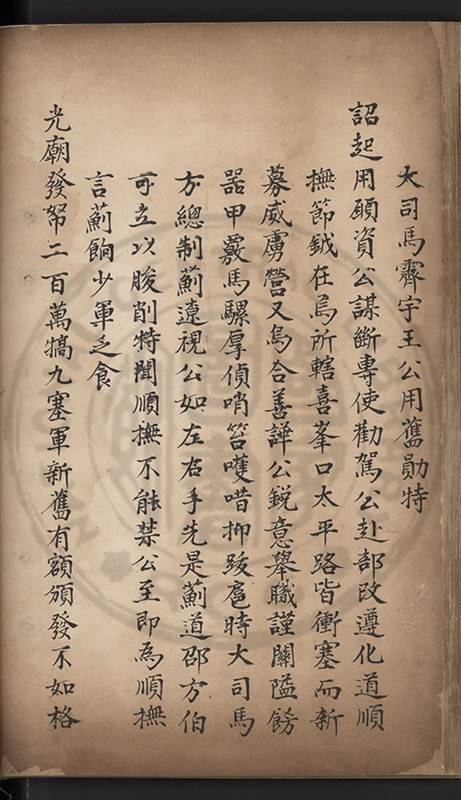 大司馬霽宇王公用舊勛特
詔起用願資公謀斷專使勸駕公赴部改遵化道順
撫節鉞在焉所轄喜峯口太平路皆衝塞而新
募威虜營又烏合善譁公銳意舉職謹關隘餝
器甲覈馬騾厚偵哨笞嚄唶抑跋扈時大司馬
方總制薊遼視公如左右手先是薊道邵方伯
可立以朘削特聞順撫不能禁公至即為順撫
言薊餉少軍乏食
光廟發帑二百萬犒九塞軍新舊有額頒發不如格